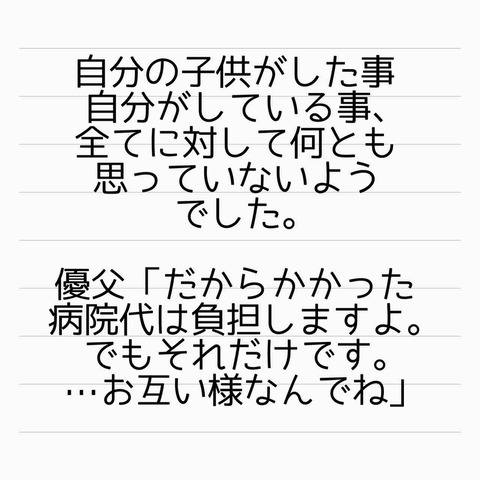 自分の子供がした事
自分がしている事、
全てに対して何とも
思っていないよう
でした。
優父「だからかかった
病院代は負担しますよ。
でもそれだけです。
…お互い様なんでね」